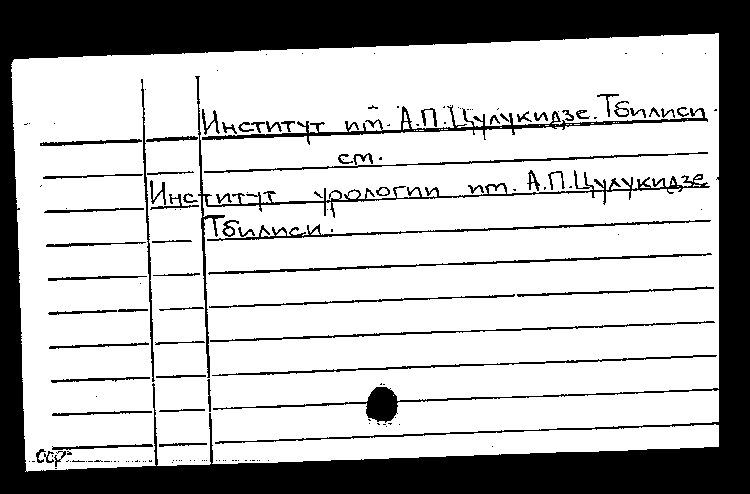 Институт им. А.П.Цулукидзе. Тбилиси.
см.
Институт урологии им. А.П.Цулукидзе.
Тбилиси.